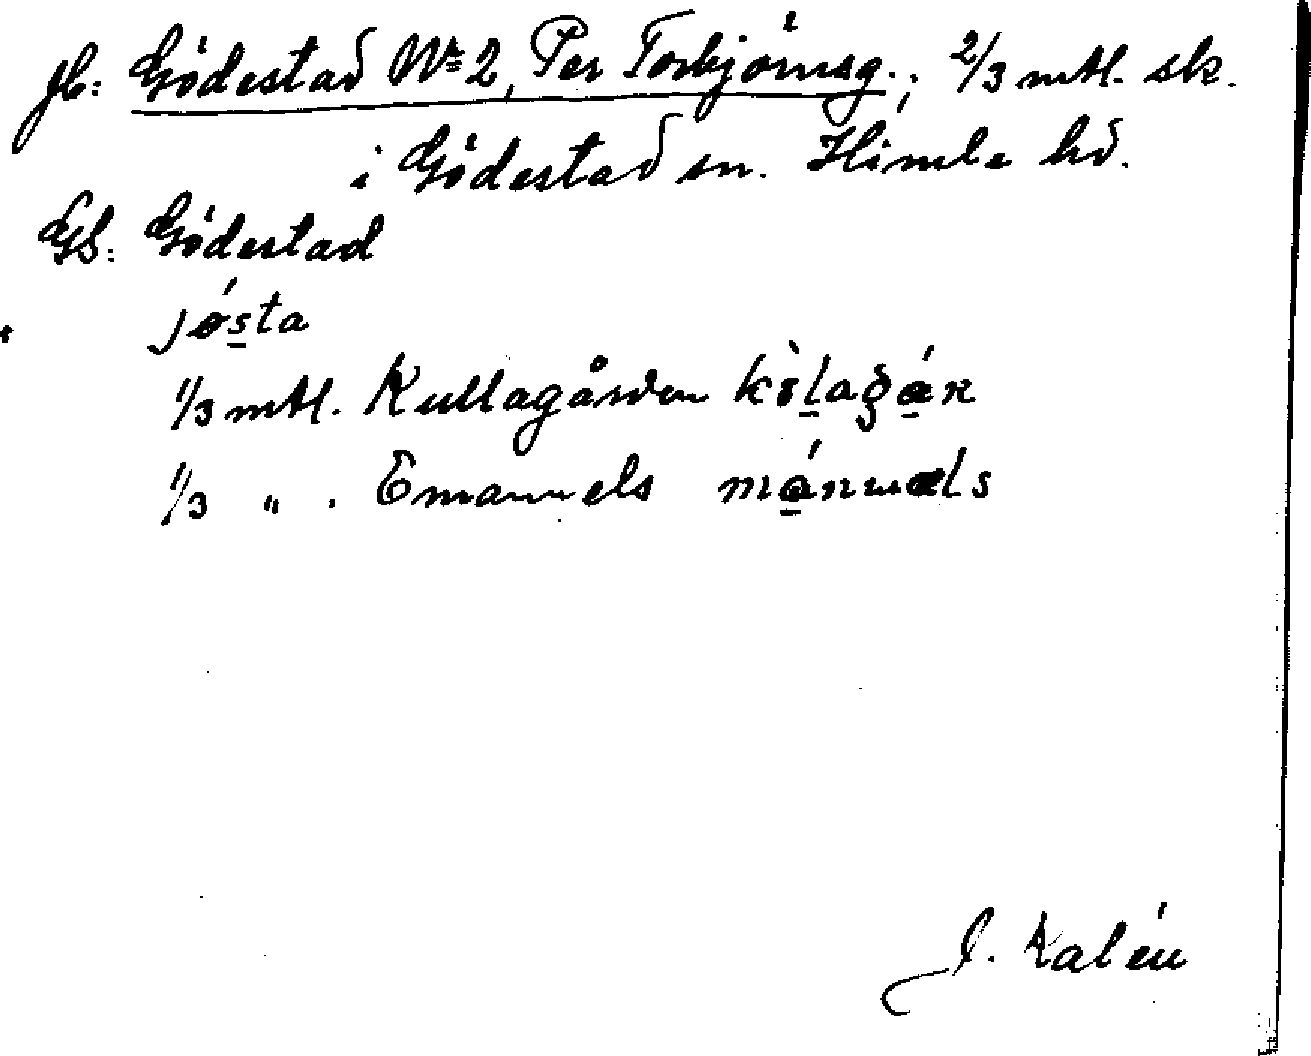 Jb: Gödestad Nr 2, Per Torbjörnsg.; 2/3 mtl. sk.
i Gödestad sn. Himle hd.
GS: Gödestad
jǿsta
1/3 mtl. Kullagården
1/3 " . Emanuels
J. Kalén